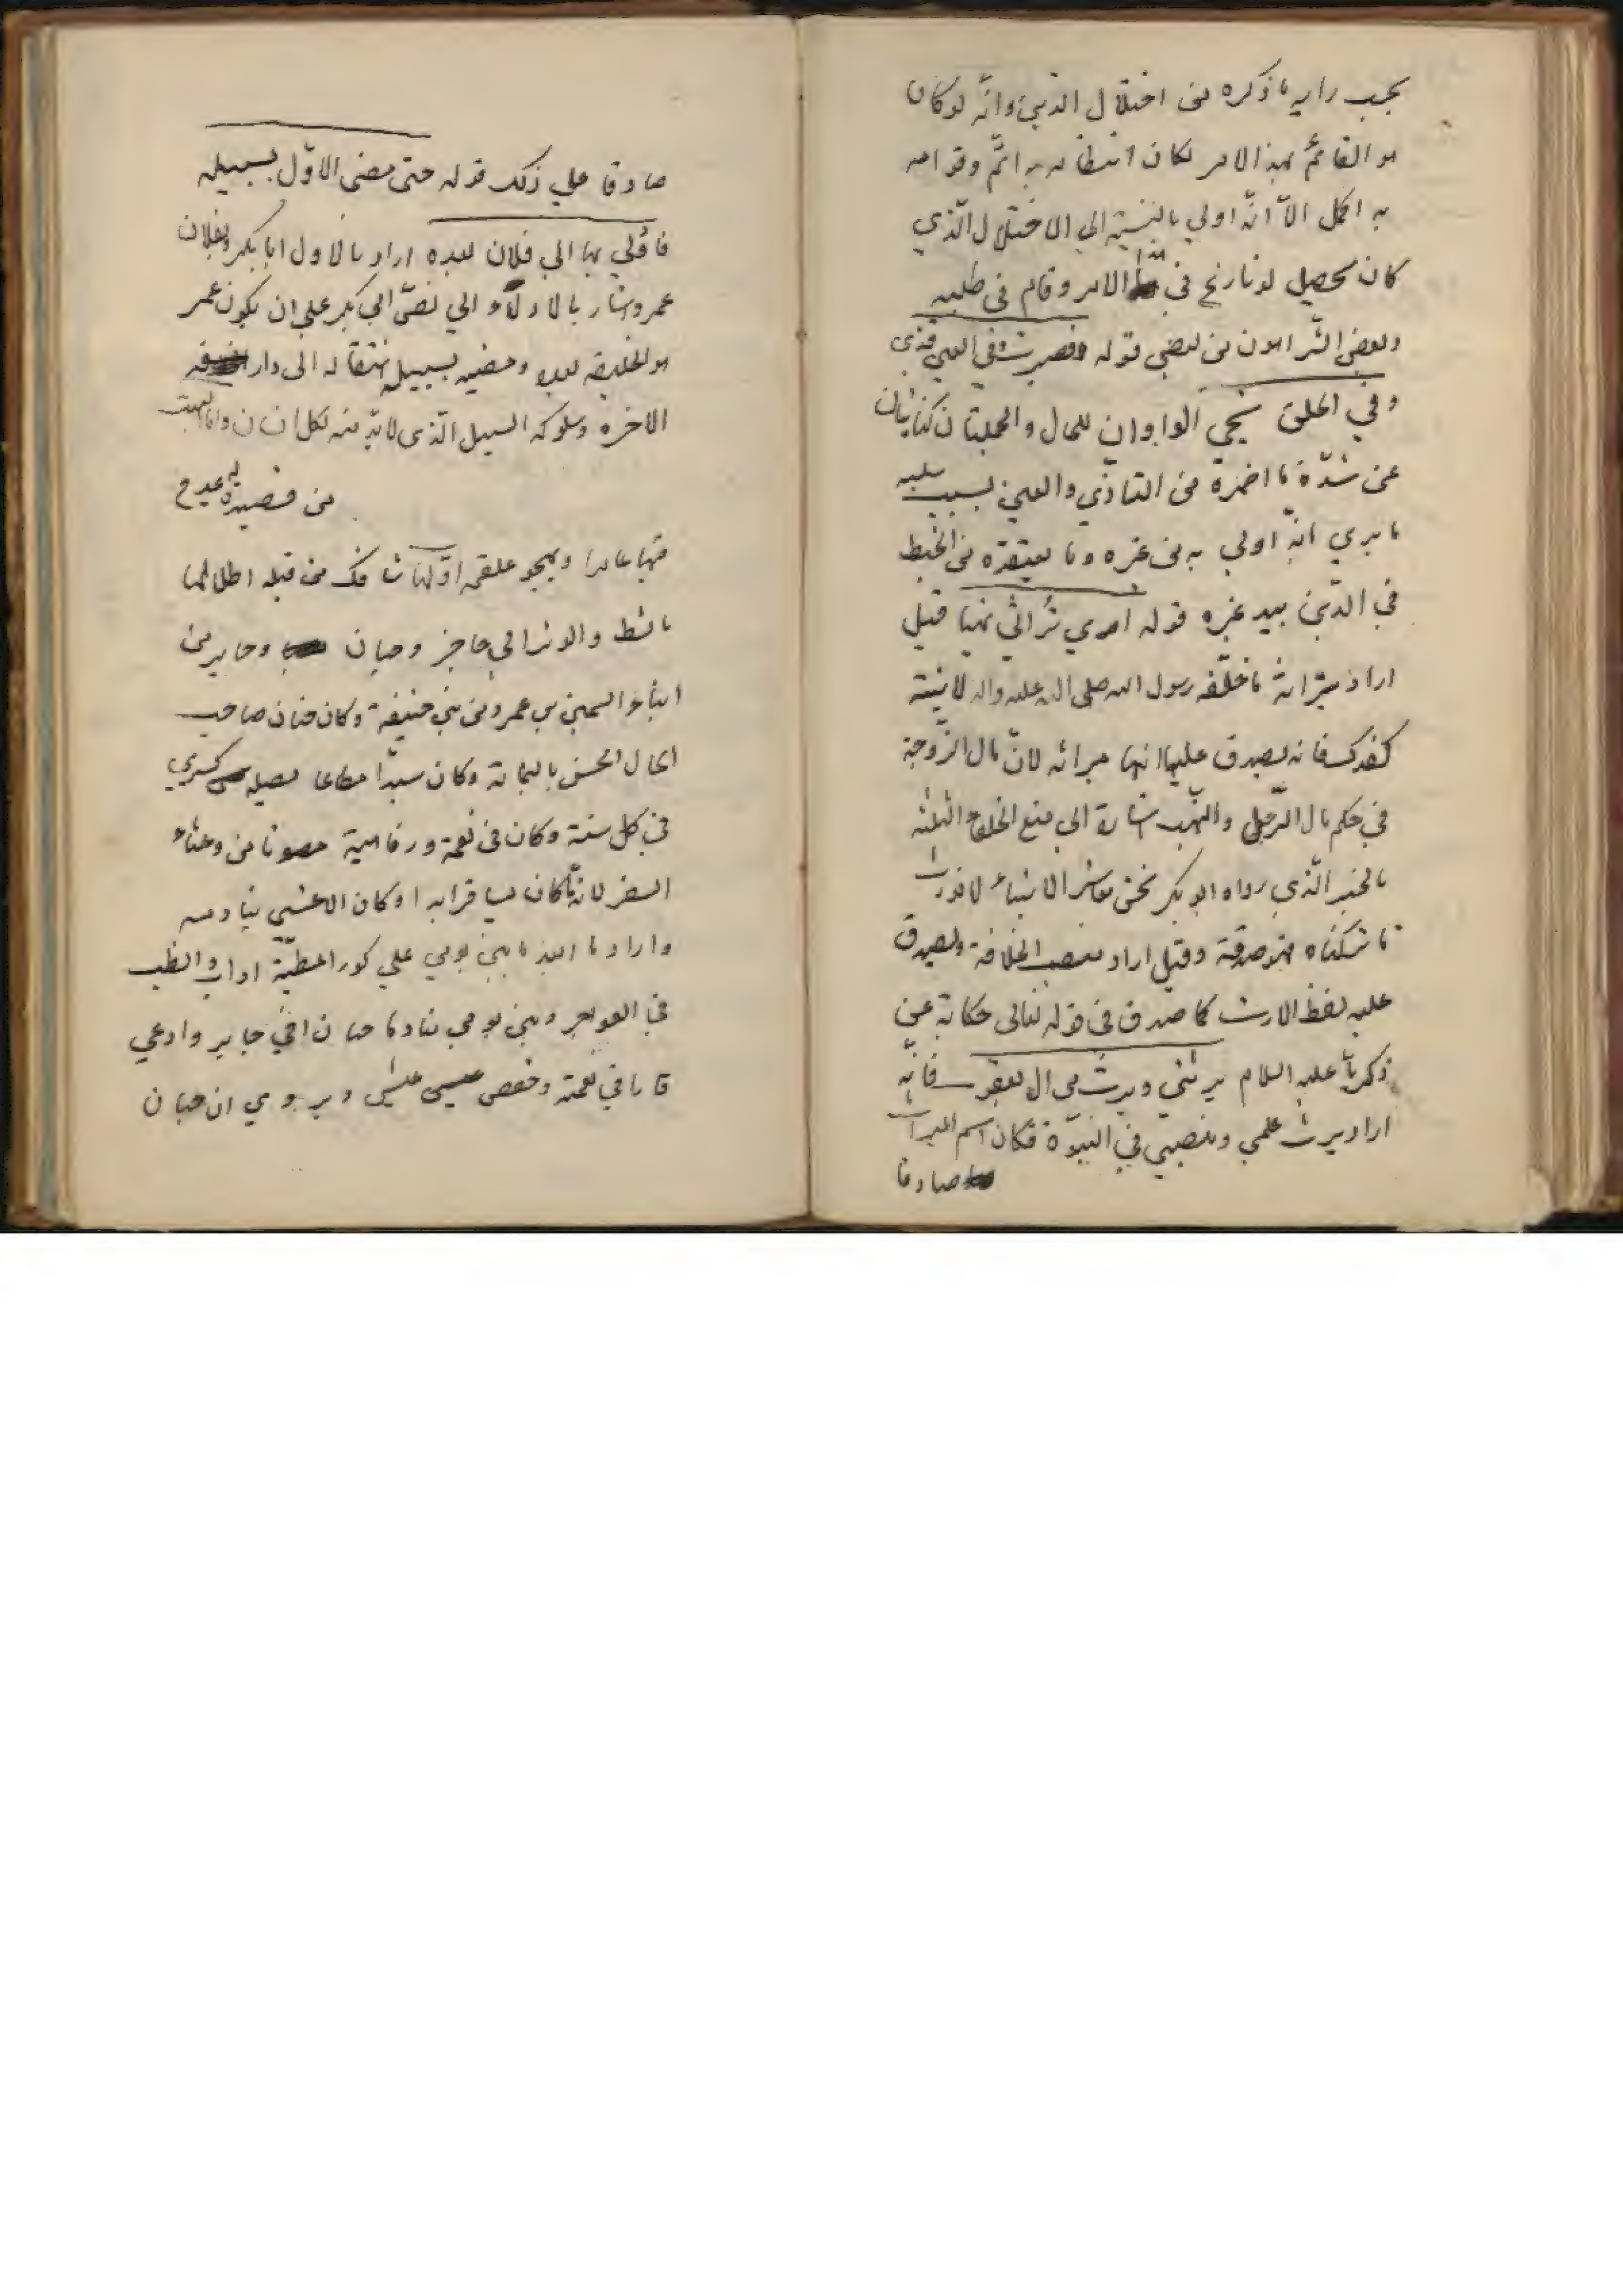 بحسب رايه ما ذكره من اختلال الدين وانّه لو كان
هو القائم بهذا الامر لكان انتظامه به اتمّ وقوامه
به اكمل الاّ انّه اولي بالنسبة الي الاختلال الّذي
كان يحصل لو نازع في هذا الامر وقام في طلبه
وبعض الشر اهون من بعض قوله فصبرت وفي العين قذي
وفي الحلق شجي الواوان للحال والجملتان كنايتان
عن شدّة ما اضمره من التاذّي والغبن بسبب سلبه
ما يري انّه اولي به من غيره وما يعتقده من الخبط
في الدّين بيد غيره قوله اري تراثي نهبا قيل
اراد بتراثه ما خلّفه رسول الله صلى الله عليه واله لابنته
كفدك فانه يصدق عليها انها ميراثه لانّ مال الزّوجة
في حكم مال الرّجل والنّهب اشارة الي منع الخلفاء الثلثه
بالخبر الّذي رواه ابو بكر نحن معاشر الانبياء لا نورث
ما تركناه فهو صدقة وقيل اراد منصب الخلافة ويصدق
عليه لفظ الارث كما صدق في قوله تعالى حكاية عن
زكريّا عليه السلام يرثني ويرث من ال يعقوب فانّه
اراد يرث علمي ومنصبي في النبوّة فكان اسم الميراث
صادقا
صادقا علي ذلك قوله حتى مضى الاوّل بسبيله
فادلي بها الي فلان بعده اراد بالاول ابا بكر وبفلان
عمر واشار بالادلاء الي نصّ ابي بكر علي ان يكون عمر
هو الخليفه بعده ومضيه بسبيله انتقاله الى دار
الاخره وسلوكه السبيل الّذى لا بدّ منه لكل انسان واما البيت
من قصيدة له يمدح
فيها عامرا ويهجو علقمه اوّلها شاقك من قبله اطلالها
بالشط والوتر الي حاجز وحيان وجابر من
ابناء السمين بن عمرو من بني حنيفة وكان حيان صاحب
الحال الحسن باليمامة وكان سيدّا مطاعا يصله كسري
في كل سنة وكان في نعمة ورفاهية مصونا من وعثاء
السفر لانّه ما كان يسافر ابدا وكان الاعشي ينادمه
واراد ما ابعد ما بين يومي علي كور المطيّة اداب وانصب
في الهواجر وبين يومي منادما حيان اخي جابر وادعي
قارا في نعمة وخفض عيش ويروي ان حيان